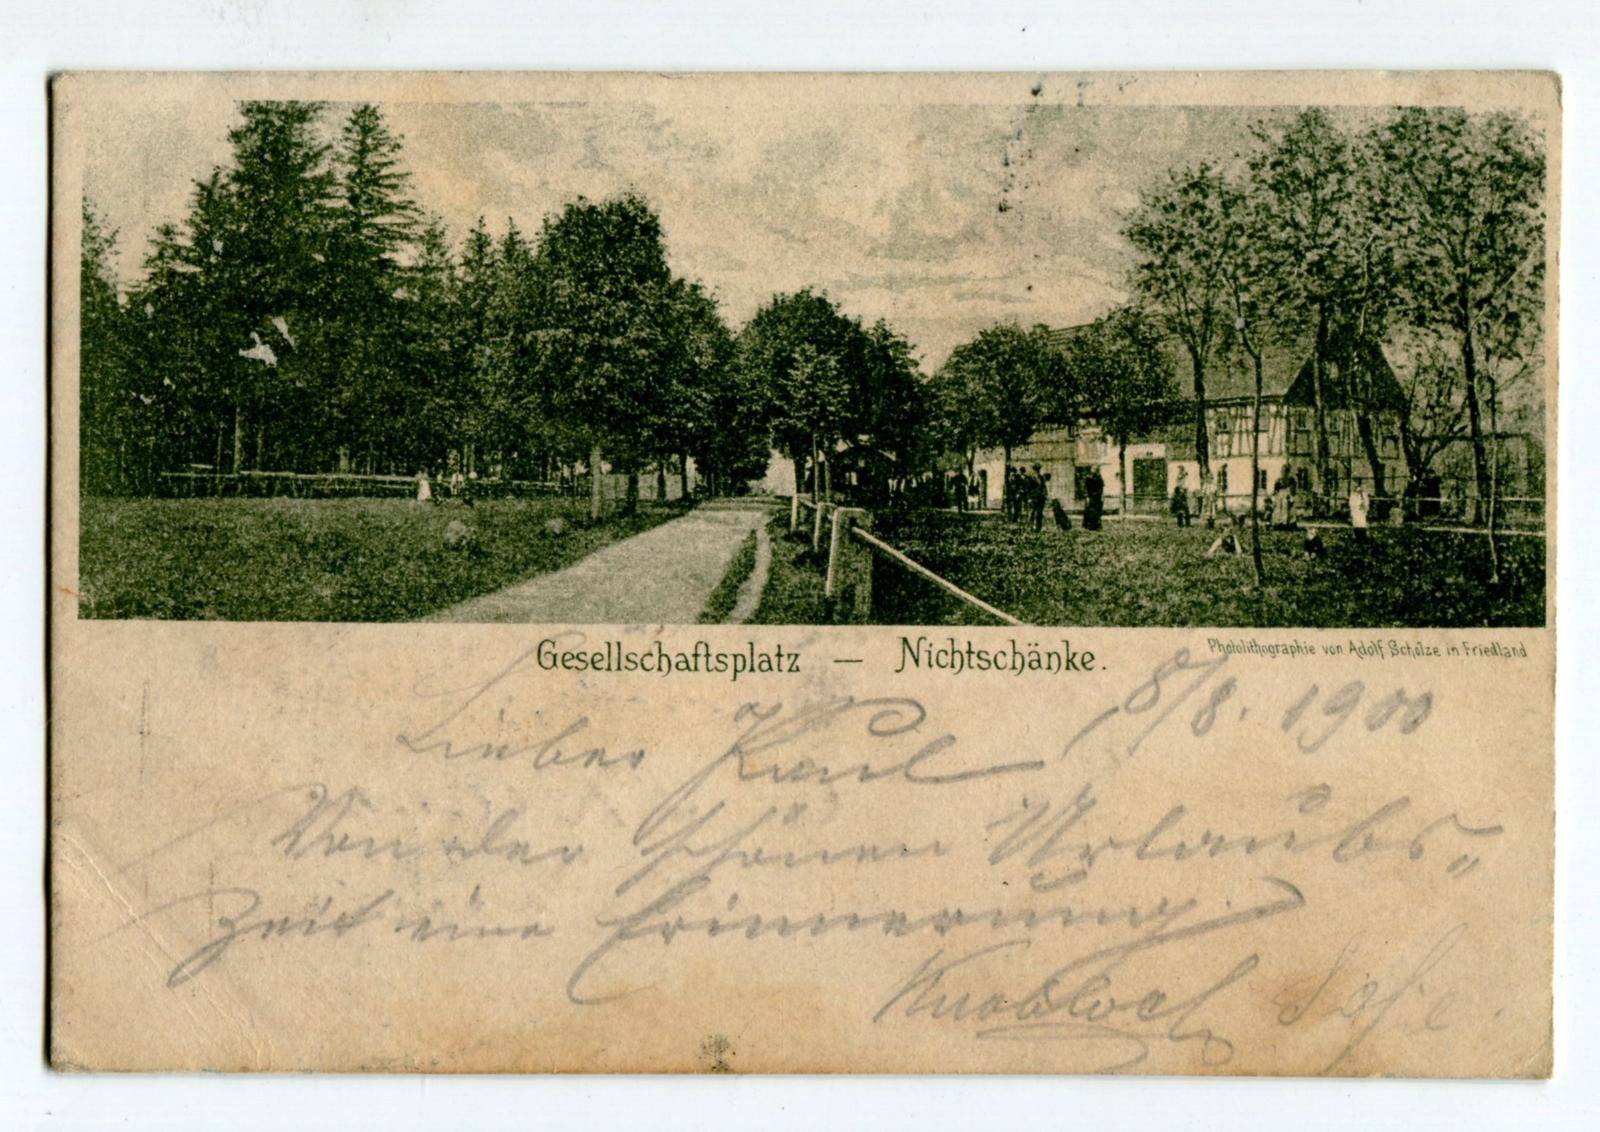 Gesellschaftsplatz — Nichtschänke.
Photolithographie von Adolf Scholze in Friedland
8/8. 1900
Lieber Karl
Von der schönen Urlaubs-
zeit eine Erinnerung.
Knobloch